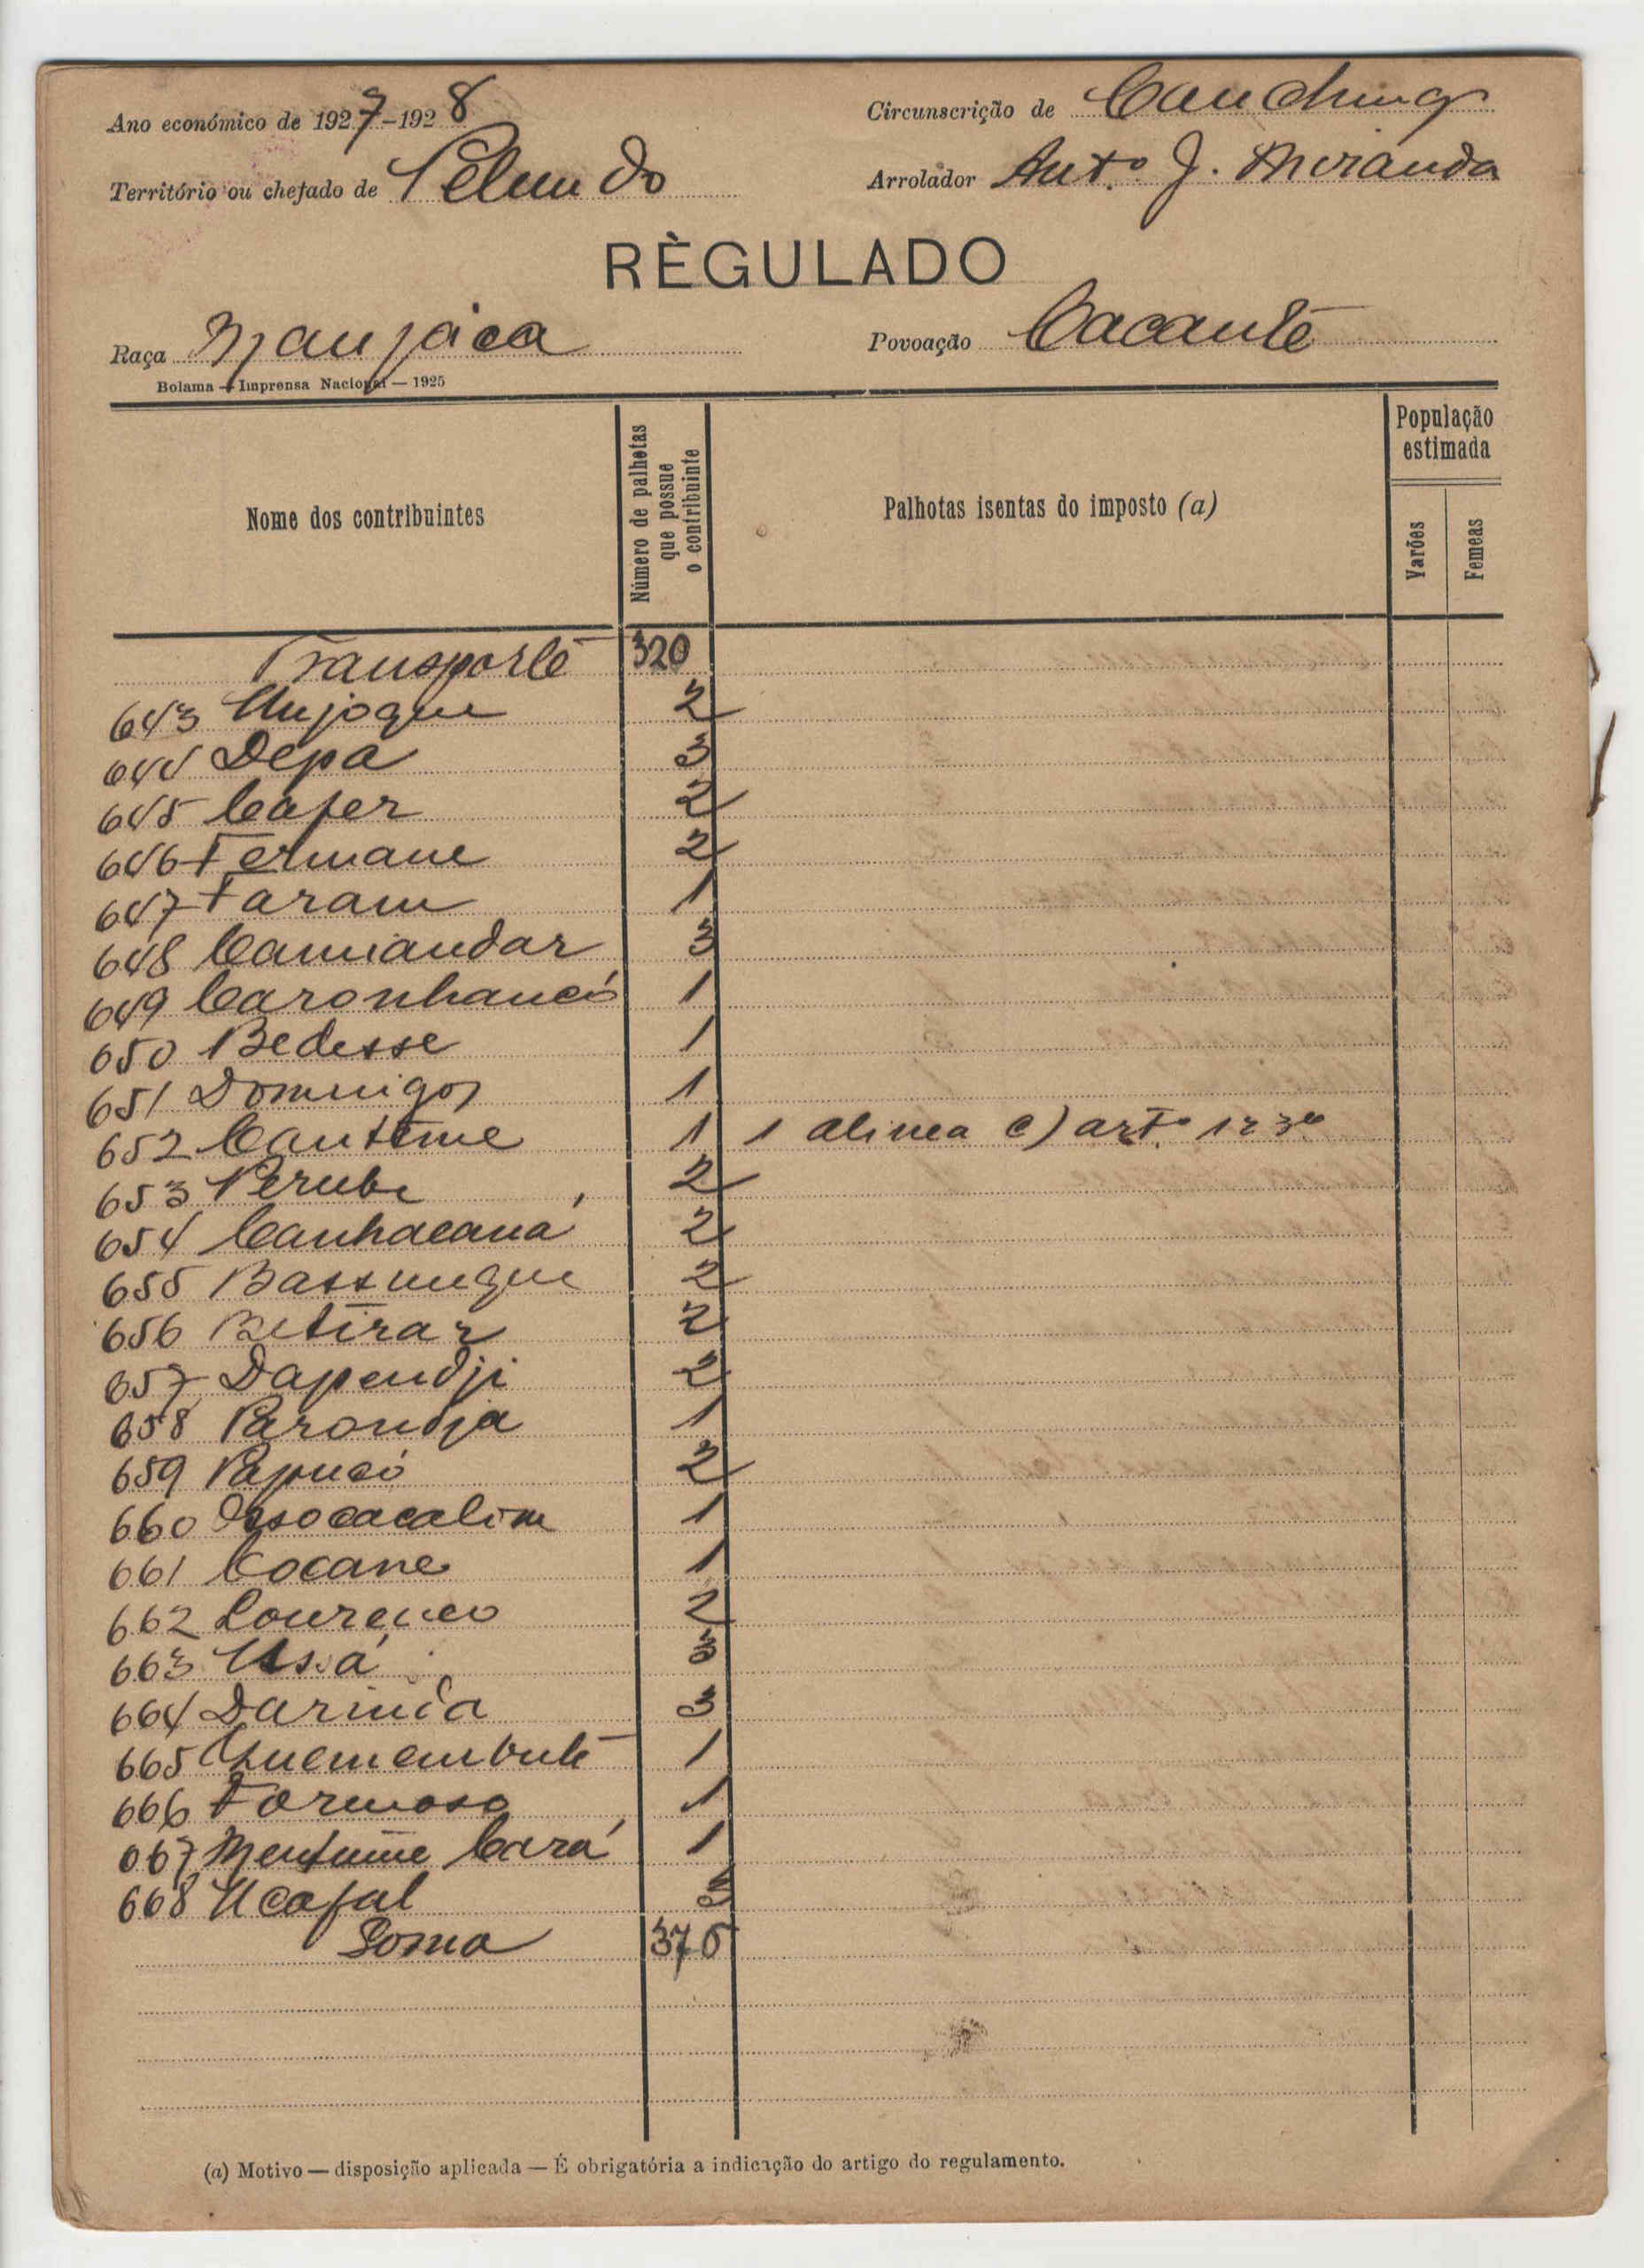 Ano económico de 1927-1928
Circunscrição de
Território ou chefado de Pelundo
Arrolador Antº J. Miranda
RÈGULADO
Raça Manjaca
Povoação Cacante
Bolama — Imprensa Nacional — 1925
Nome dos contribuintes
Número de palhotas que possue o contribuinte
Palhotas isentas do imposto (a)
População estimada
Varões
Femeas
Transporte 320
643 Unjoque 2
644 Depa 3
645 Cafer 2
646 Fermane 2
647 Faram 1
648 Camiandar 3
649 Caronhancó 1
650 Bedesse 1
651 Domingos 1
652 Canteme 1 1 alinea c) artº
653 Perube 2
654 Canhacaná 2
655 Bassunque 2
656 Betirar 2
657 Dapendji 2
658 Parondja 1
659 Papucó 2
660 1
661 Cocane 1
662 Lourenco 2
663 Ussá 3
664 Darinda 3
665 Quemembulé 1
666 Formoso 1
667 Mentume Cará 1
668 Ucafal 3
Soma 375
(a) Motivo — disposição aplicada — É obrigatória a indicação do artigo do regulamento.